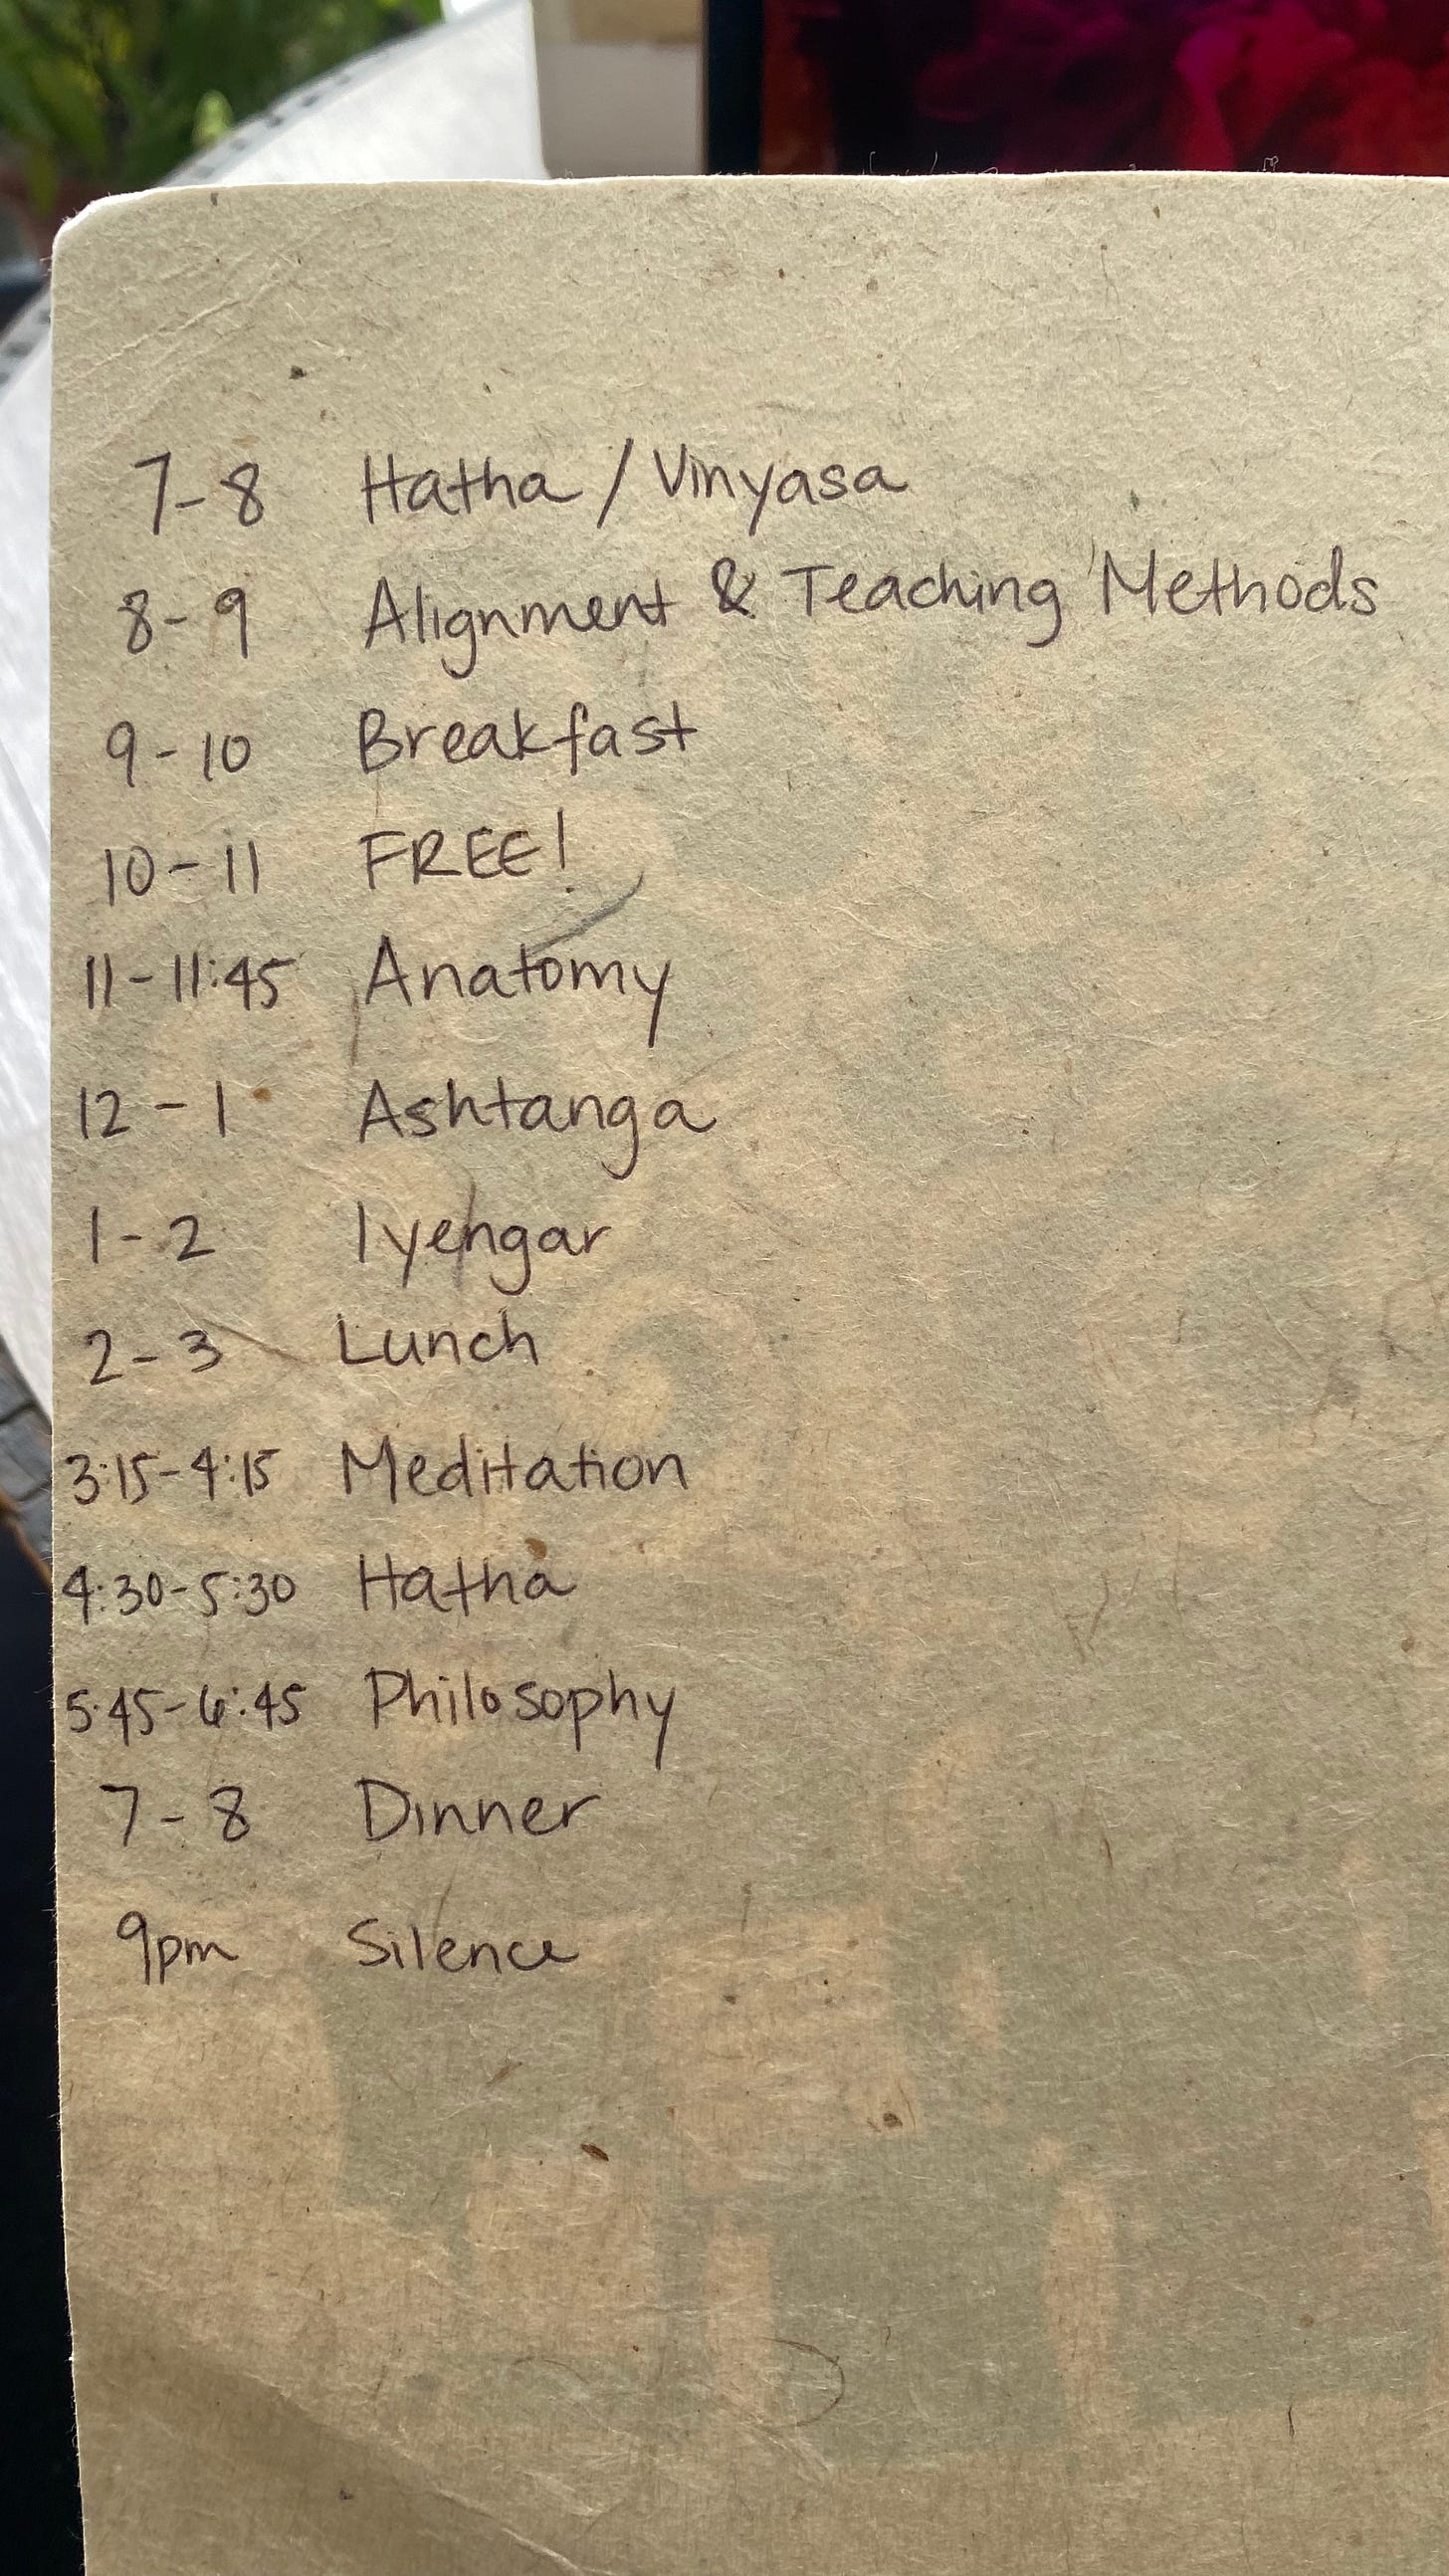 7-8 Hatha / Vinyasa
8-9 Alignment & Teaching Methods
9-10 Breakfast
10-11 FREE!
11-11:45 Anatomy
12-1 Ashtanga
1-2 Iyengar
2-3 Lunch
3:15-4:15 Meditation
4:30-5:30 Hatha
5:45-6:45 Philosophy
7-8 Dinner
9pm Silence